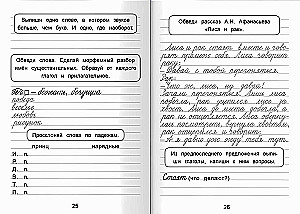 Выпиши одно слово, в котором звуков
больше, чем букв. И одно, где наоборот.
Обведи слова. Сделай морфемный разбор
имён существительных. Образуй от каждого
глагол и прилагательное.
победа
рисунок
Просклоняй слова по падежам.
принц нарядные
И.
Р.
Д.
В.
Т.
П.
25
Обведи рассказ А.Н. Афанасьева
«Лиса и рак».
Лиса и рак стоят вместе и гово-
рят промеж себя. Лиса говорит
раку:
— Давай с тобой перегоняться.
Рак:
— Что ж, лиса, ну давай!
Начали перегоняться. Лишь лиса
побежала, рак уцепился лисе за
хвост. Лиса до места добежала, а
рак не отцепляется. Лиса обернулась
посмотреть, вернула хвостом,
рак отцепился и говорит:
— А я давно уж жду тебя тут.
Из последнего предложения выпи-
ши глаголы, напиши к ним вопросы.
Стоят (что делают?)
26